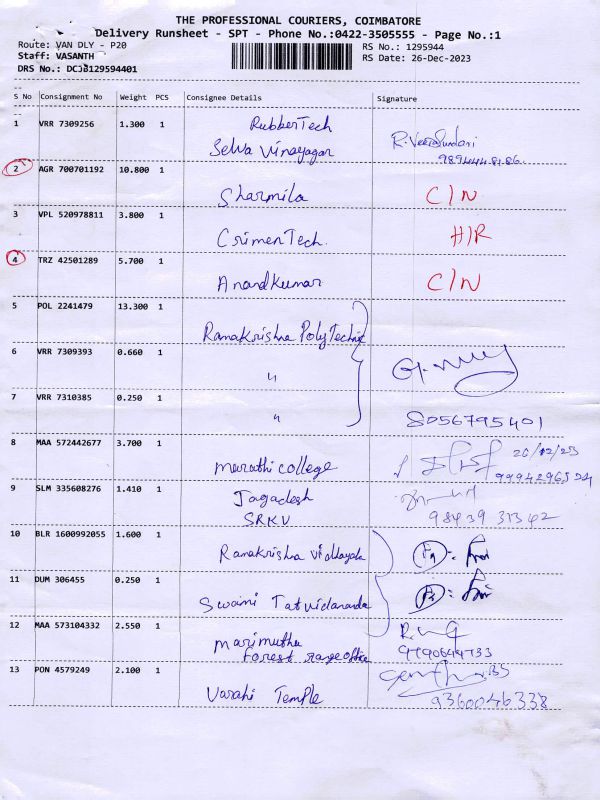 THE PROFESSIONAL COURIERS, COIMBATORE
Delivery Runsheet - SPT - Phone No.:0422-3505555 - Page No.:1
Route: VAN DLY - P20
RS No.: 1295944
Staff: VASANTH
RS Date: 26-Dec-2023
DRS No.: DCJB129594401
S No Consignment No Weight PCS Consignee Details Signature
1 VRR 7309256 1.300 1 RubberTech
Selva Vinayagar
2 AGR 700701192 10.800 1
Sharmila C/N
3 VPL 520978811 3.800 1
CrimenTech. H/R
4 TRZ 42501289 5.700 1
Anandkumar C/N
5 POL 2241479 13.300 1
Ramakrishna PolyTechnic
6 VRR 7309393 0.660 1
"
7 VRR 7310385 0.250 1
" 8056795401
8 MAA 572442677 3.700 1
marathi college
9 SLM 335608276 1.410 1 Jagadesh
SRKV 98439 31342
10 BLR 1600992055 1.600 1
Ramakrishna Vidhyalaya
11 DUM 306455 0.250 1
Swami Tatvidananda
12 MAA 573104332 2.550 1
Marimuthu
Forest range office
13 PON 4579249 2.100 1
Varahi Temple 9360046338